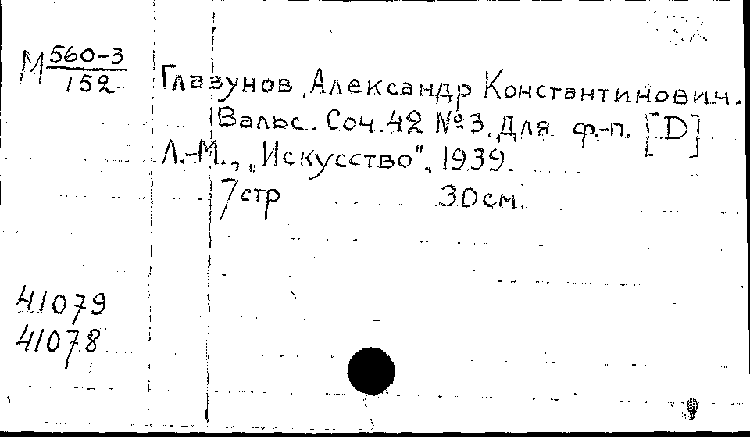 М 560-3/152
Глазунов, Александр Константинович.
Вальс. Соч. 42 №3. Для ф.-п. [D]
Л.-М., „Искусство”, 1939.
7 стр 30 см.
41079
41078